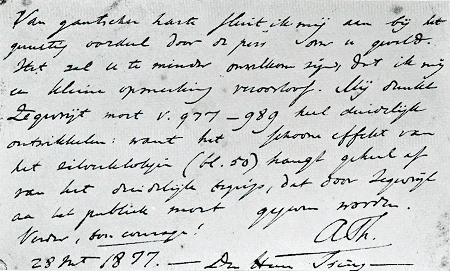 Van gantscher harte sluit ik mij aan bij het
gunstig oordeel door de pers over u geveld.
Het zal u te minder onwelkom zijn, dat ik mij
en kleine opmerking veroorloof. Mij dunkt
Zegewrijt moet v. 977–989 heel duidelijk
ontwikkelen: want het schoone effekt van
het zilverklokjen (bl. 50) hangt geheel af
van het duidelijke begrip, dat door Zegewrijt
aan het publiek moet gegeven worden.
Verder, bon courage!
A.Th.
28 1877. — Den Heer